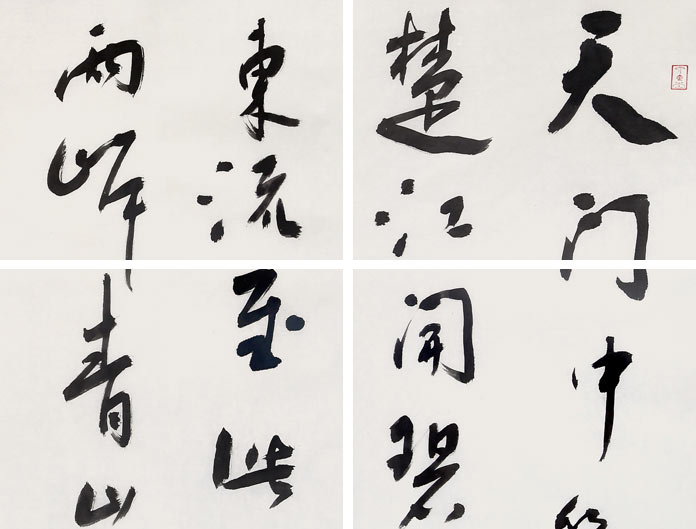 天门中
楚江開碧
東流至此
两岸青山